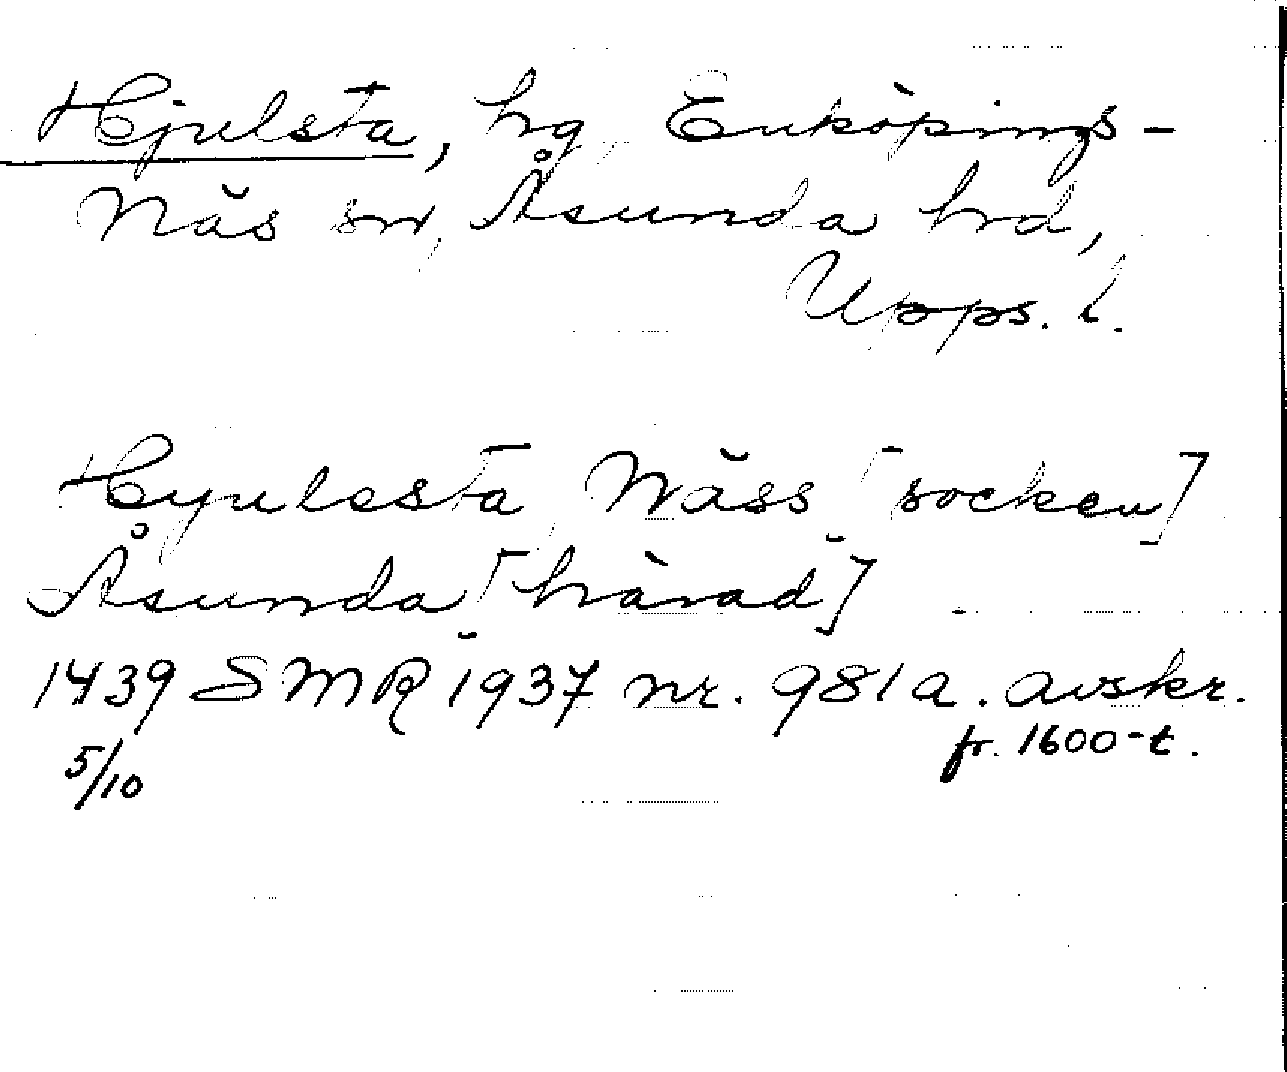 Hjulsta, hg, Enköpings-
Näs sn, Åsunda hrd,
Upps. l.
Hyulesta, Näss [socken]
Åsunda [härad]
1439 SMR 1937 nr. 981a. avskr.
fr. 1600-t.
5/10